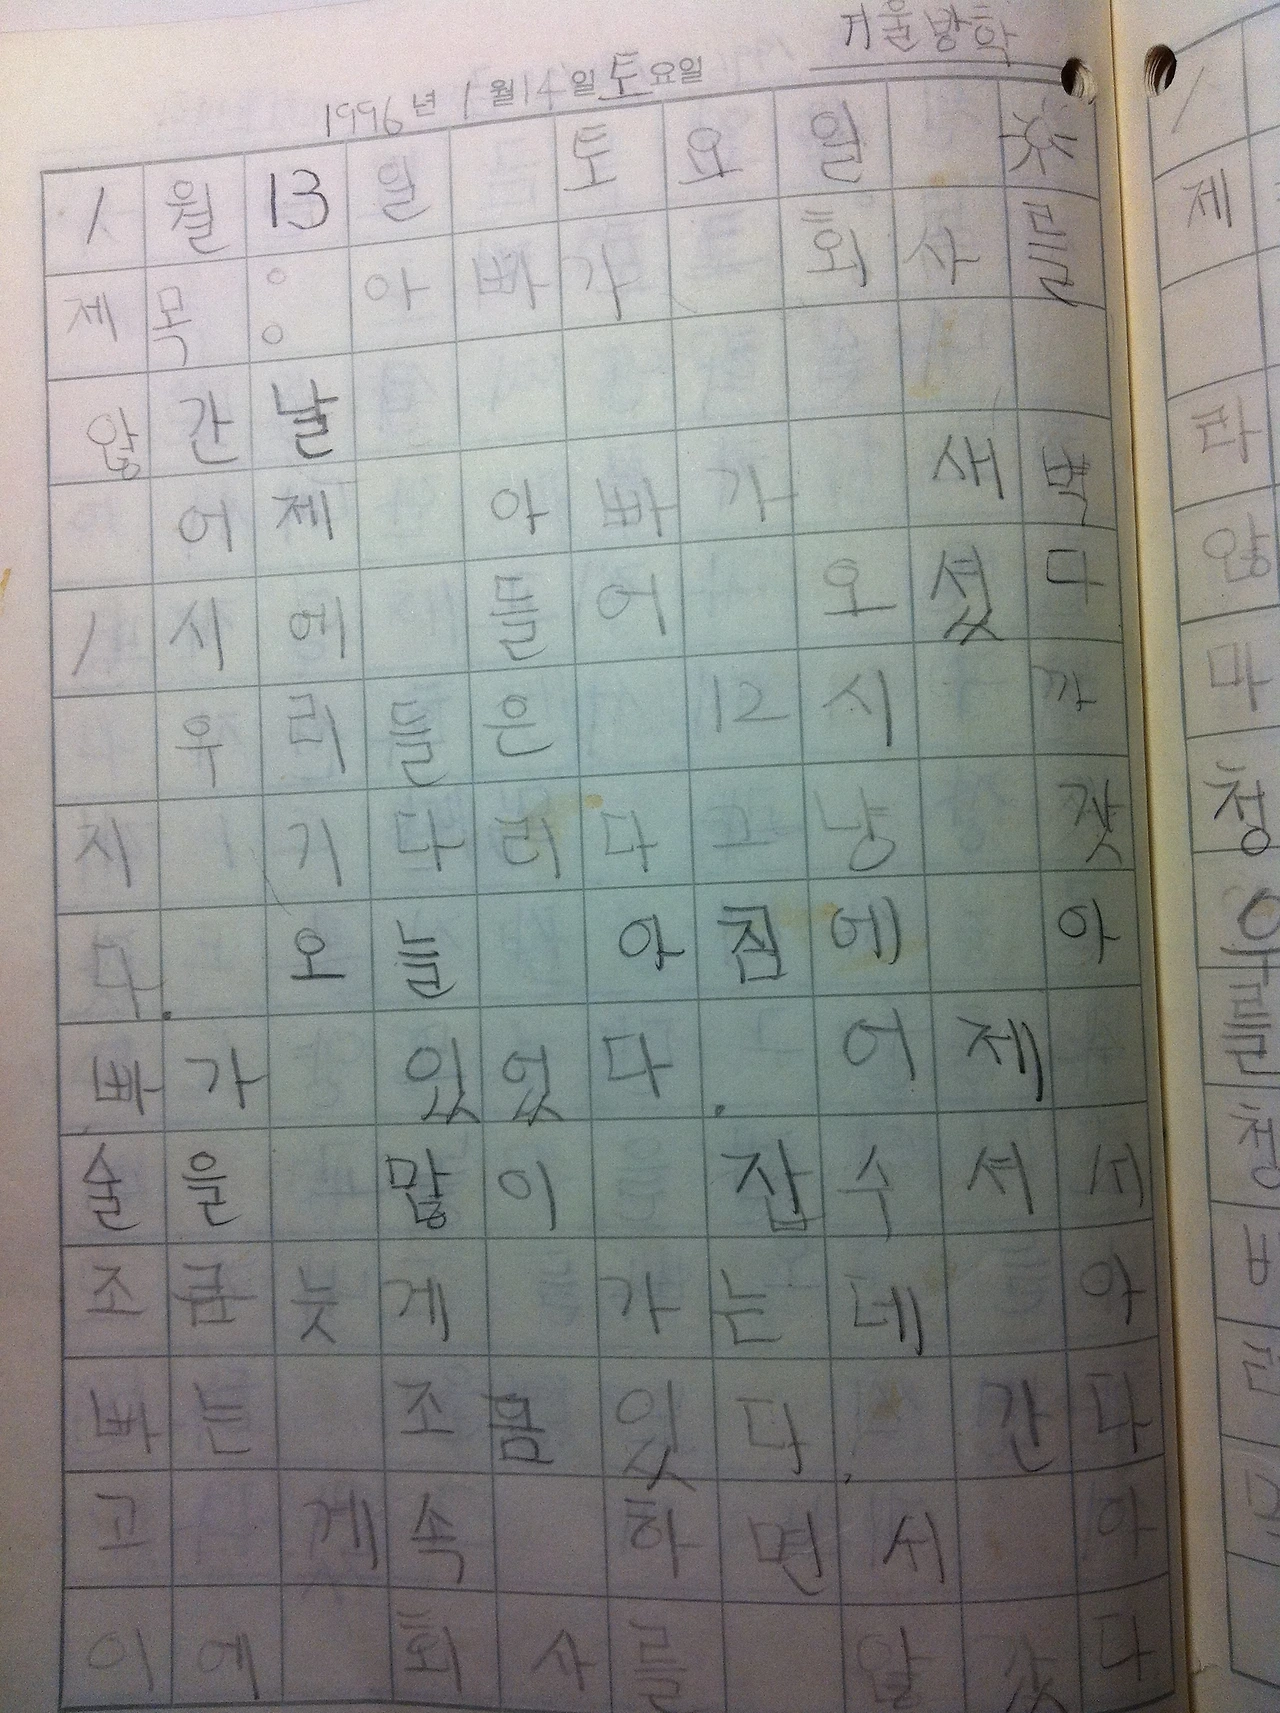 겨울방학
1996년 1월 14일 토요일
1월 13일 토요일
제목: 아빠가 회사를
않간날
어제 아빠가 새벽
1시에 들어 오셨다
우리들은 12시 까
지 기다리다 그냥 잤
다. 오늘 아침에 아
빠가 있었다. 어제
술을 많이 잡수셔서
조금늦게 가는데 아
빠는 조곰있다. 간다
고 게속 하면서 아
이에 회사를 않갔다
제
라
않
마
청
우
를
청